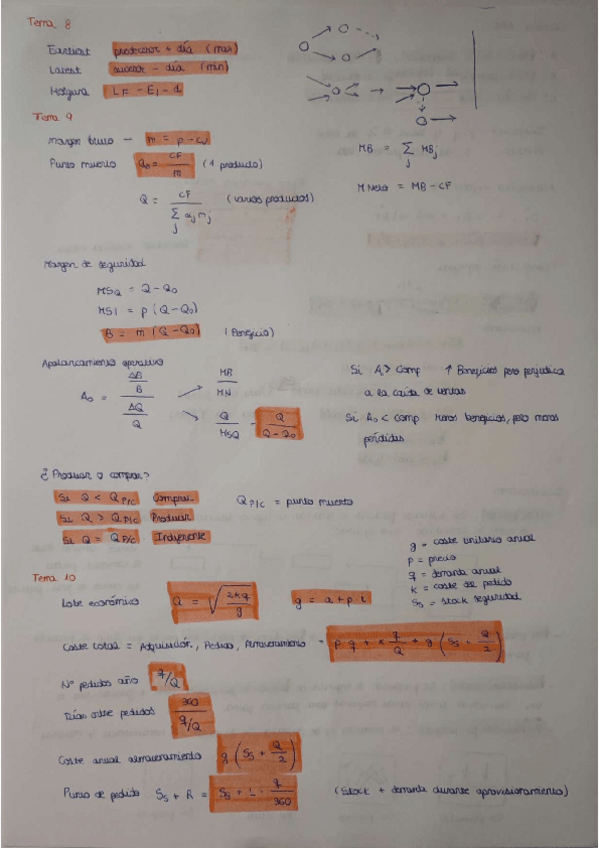 Tema 8
Earliest predecesor + día (max)
Latest sucesor - día (min)
Holgura LF - EI - d
Tema 9
Margen bruto - m = p - cv
Punto muerto Q0 = CF / m (1 producto)
MB = Σj MBj
Q = CF / Σj αj mj (varios productos)
M Neto = MB - CF
Margen de seguridad
MSQ = Q - Q0
MSI = p (Q - Q0)
B = m (Q - Q0) (Beneficio)
Apalancamiento operativo
A0 = (ΔB / B) / (ΔQ / Q) → MB / MN
→ Q / MSQ = Q / Q - Q0
Si A0 > Comp ↑ Beneficios pero perjudica
a la caída de ventas
Si A0 < Comp menos beneficios, pero menos
pérdidas
¿Producir o comprar?
Si Q < QP/C Comprar
Si Q > QP/C Producir
Si Q = QP/C Indiferente
QP/C = punto muerto
g = coste unitario anual
P = precio
q = demanda anual
k = coste de pedido
Ss = stock seguridad
Tema 10
Lote económico Q = √(2kq / g) g = a + p i
Coste total = Adquisición, Pedido, Almacenamiento = P q + k q/Q + g (Ss + Q/2)
Nº pedidos año q/Q
Días entre pedidos 360 / q/Q
Coste anual almacenamiento g (Ss + Q/2)
Punto de pedido Ss + R = Ss + L · q/360 (Stock + demanda durante aprovisionamiento)